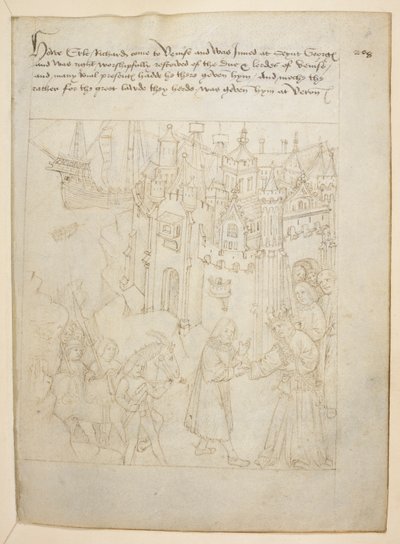 Howe Erle Richard come to Venise and was Inned at Seynt Georges
and was right worshipfully resceved of the duc & lordes of Venise
and many roial presentz hadde he there geven hym And moche the
rather for the great lawde they herde was geven hym at Veron